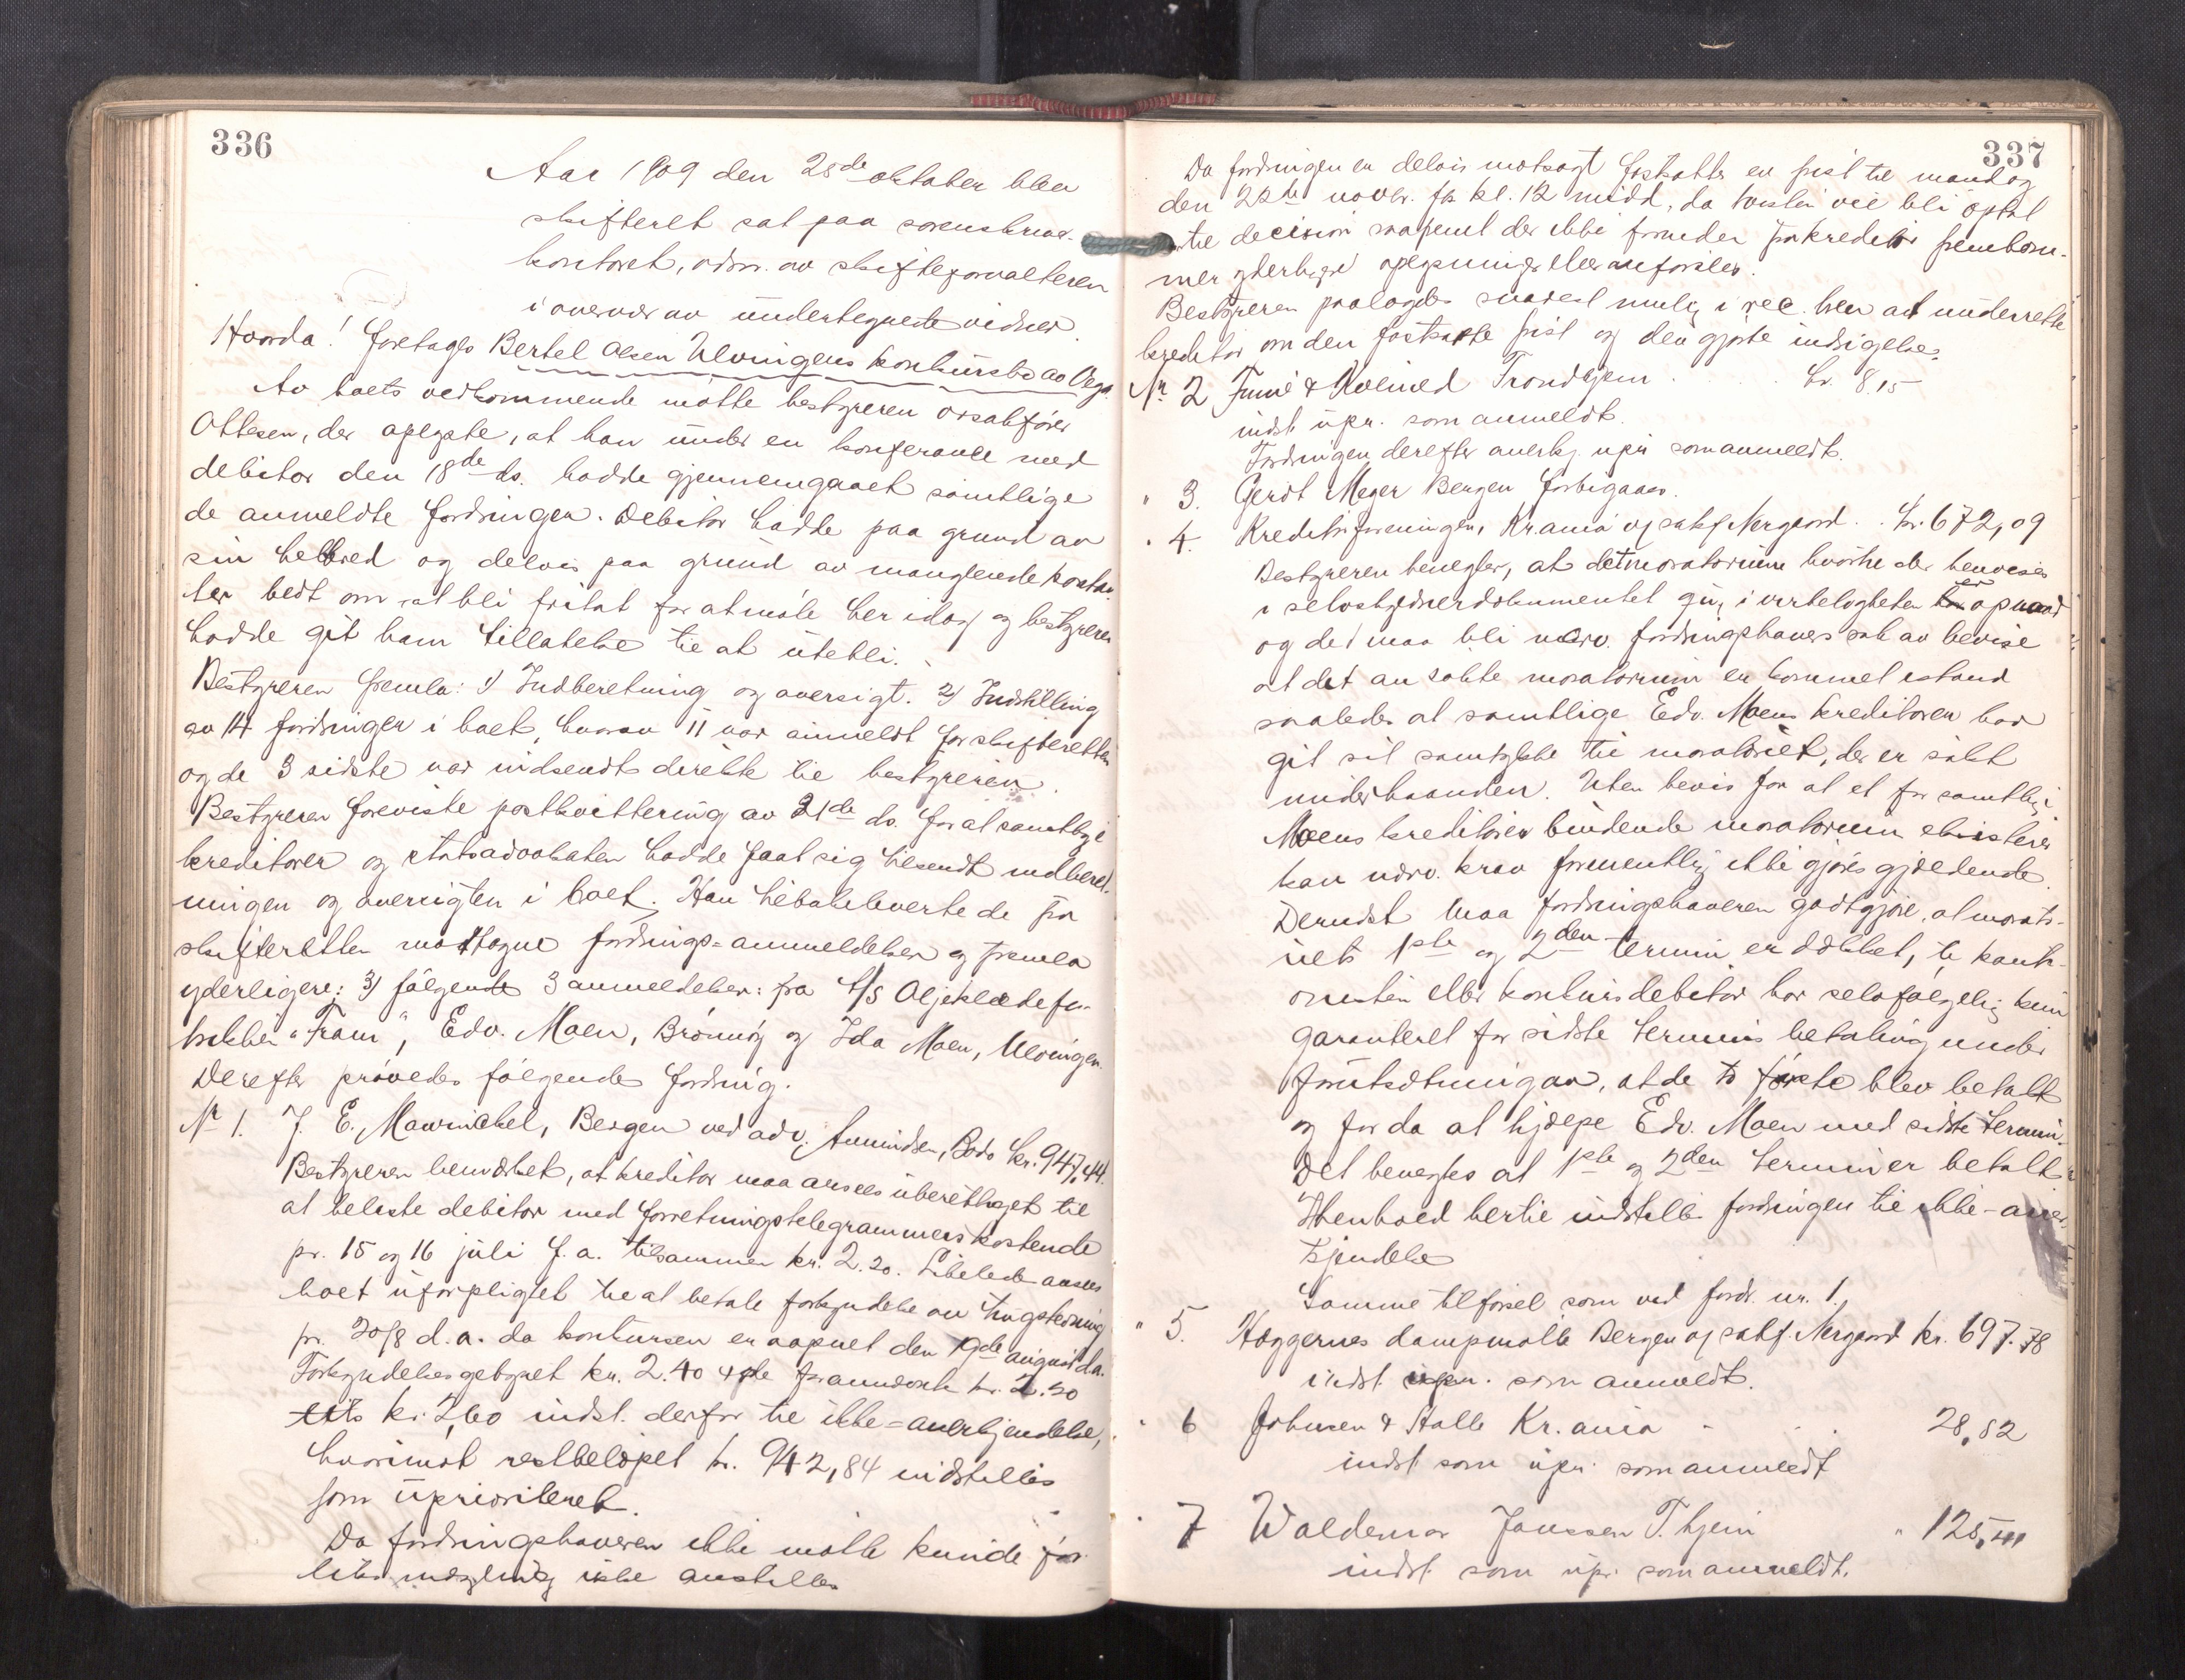 336
Aar 1909 den 28de oktober blev
skifteret sat paa sorenskriver-
kontoret, adm. av skifteforvalteren
i overvær av undertegnede vidner.
Hvorda! foretages Bertel Olsen Ulvingens konkursbo av Vega.
Av boets vedkommende møtte bestyreren ovsakfører
Ottesen, der oplyste, at han under en konferance med
debitor den 18de ds. hadde gjennemgaaet samtlige
de anmeldte fordringer. Debitor hadde paa grund av
sin helbred og delvis paa grund av manglende kontan-
ter bedt om at bli fritat for at møte her idag og bestyreren
hadde git ham tillatelse til at utebli.
Bestyreren fremla: 1) Indberetning og oversigt. 2) Indstilling
av 14 fordringer i boet, hvorav 11 var anmeldt for skifteretten
og de 3 sidste var indsendt direkte til bestyreren.
Bestyreren foreviste postkvittering av 21de ds. for at samtlige
kreditorer og statsadvokaten hadde faat sig tilsendt indberet-
ningen og oversigten i boet. Han tilbakeleverte de fra
skifteretten mottagne fordrings-anmeldelser og fremla
yderligere: 3) følgende 3 anmeldelser: fra A/S Oljeklædefa-
brikken "Fram", Edv. Moen, Brønnøy og Ida Moen, Ulvingen.
Derefter prøvedes følgende fordring.
Nr 1. J. E. Mowinckel, Bergen ved adv. Amundsen, Bodø kr. 947,44.
Bestyreren bemerket, at kreditor maa ansees uberettiget til
at belaste debitor med forretningstelegrammers kostende
pr. 15 og 16 juli f.a. tilsammen kr. 2.20. Likeledes ansees
boet uforpligtet til at betale forkyndelse av
pr. 20/8 d.a. da konkursen er aapnet den 19de august d.a.
Forkyndelsesgebyret kr. 2.40
kr. 2,60 indst. derfor til ikke-anerkjendelse,
hvorimot restbeløpet kr. 942,84 indstilles
som uprioriteret.
Da fordringshaveren ikke møtte kunde for-
liksmægling ikke anstilles
337
Da fordringen er delvis motsagt fastsattes en frist til mandag
den 22de novbr. før kl. 12 midd, da tvisten vil bli optat
til decision saafremt der ikke forinden fra kreditor fremkom-
mer yderligere oplysninger eller anførsler.
Bestyreren paalagdes snarest mulig i rec. brev at underrette
kreditor om den fastsatte frist og den gjorte indsigelse.
Nr 2 Huitfeldt Trondhjem . . . kr. 8.15
indst. upr. som anmeldt.
Fordringen derefter anerkj. upr. som anmeldt.
" 3. Gerdt Meyer Bergen forbigaaes.
" 4. Kreditorforeningen, Kr.ania v/ sakf. Nergaard . . kr. 672,09
Bestyreren benegter, at det moratorium hvortil der henvises
i selvskyldnerdokumentet i virkeligheten er opnaad
og det maa bli vedk. fordringshavers sak av bevise
at det ansøkte moratorium er kommet istand
saaledes at samtlige Edv. Moens kreditorer har
git sit samtykke til moratoriet, der er søkt
underhaanden. Uten bevis for at et for samtlige
Moens kreditorer bindende moratorium eksisterer
kan nærv. krav formentlig ikke gjøres gjældende.
Dernæst maa fordringshaveren godtgjøre, at morato-
riets 1ste og 2den termin er dækket, ti kauti-
onisten eller konkursdebitor har selvfølgelig kun
garanteret for sidste termins betaling under
forutsætning av, at de to første blev betalt
og for da at hjælpe Edv. Moen med sidste termin.
Det benegtes at 1ste og 2den termin er betalt.
I henhold hertil indstilles fordringen til ikke-aner-
kjendelse
Samme tilførsel som ved fordr. nr. 1.
" 5. Vaggernes dampmølle Bergen v/ sakf. Nergaard kr. 697.78
indst. upr. som anmeldt.
" 6 Johnsen & Stalle Kr.ania - . . 28,82
indst. som upr. som anmeldt
" 7 Waldemar Janssen T.hjem " 125,44
indst. som upr. som anmeldt.